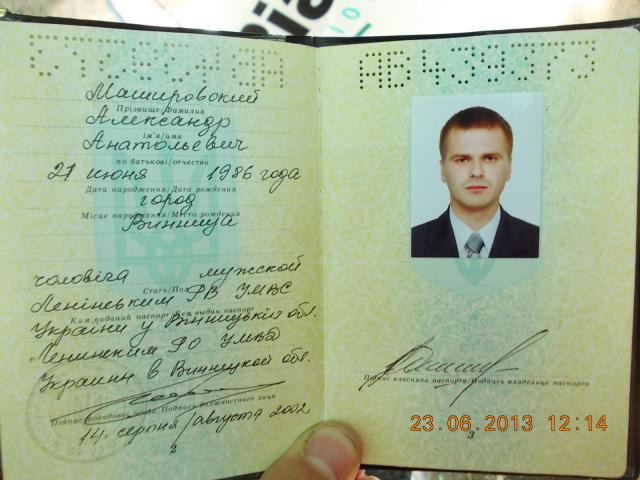 Машировский
Прізвище/Фамилия
Александр
ім'я/имя
Анатольевич
по батькові/отчество
21 июня 1986 года
Дата народження/Дата рождения
город
Місце народження/Место рождения
Винница
чоловіча мужской
Стать/Пол
Ленінським РВ УМВС
Ким виданий паспорт/Кем выдан паспорт
України у Вінницькій обл.
Ленинским РО УМВД
Украины в Винницкой обл.
Підпис посадової особи/Подпись должностного лица
14 серпня/августа 2002
2
АВ439373
Підпис власника паспорта/Подпись владельца паспорта
23.06.2013 12:14
3